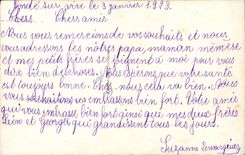 Condé sur vire le 3 janvier 1913.
Chers amis
Nous vous remercions de vos souhaits et nous
vous adressons les nôtres papa, maman mémère
et mes petits frères se joignent à moi pour vous
dire bien des choses. Nous espérons que votre santé
est toujours bonne. Chez nous cela va bien. Nous
vous souhaitons en embrassons bien fort. Votre amie
qui vous embrasse bien fort ainsi que mes deux frères
et Georges qui grandissent tous les jours.
Suzanne